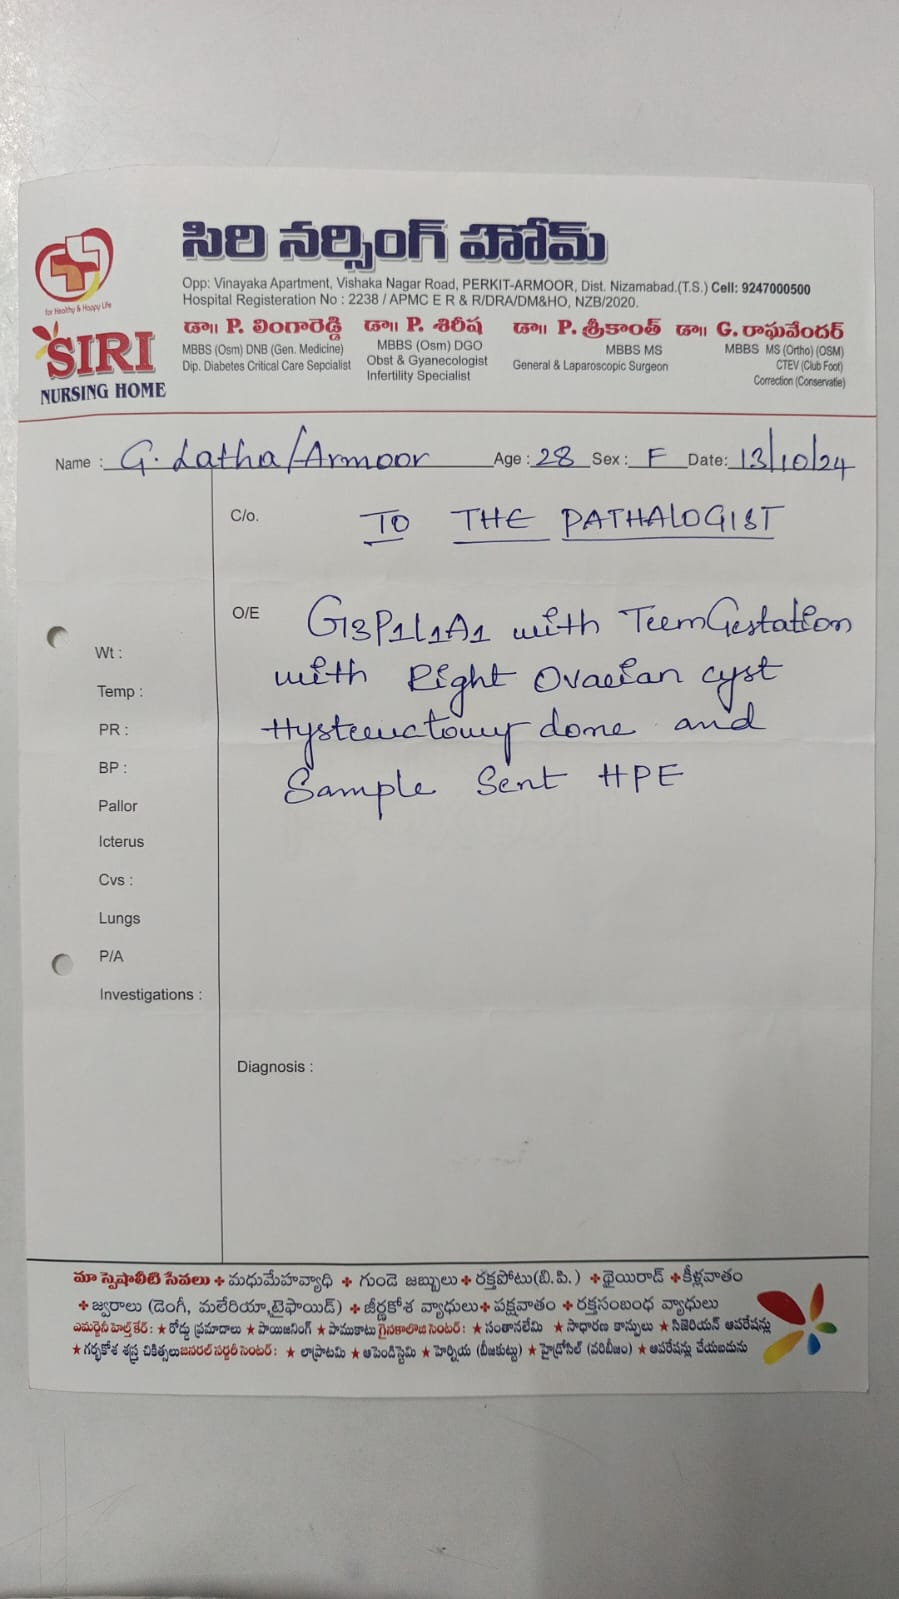 సిరి నర్సింగ్ హోమ్
for Healthy & Happy Life
SIRI
NURSING HOME
Opp: Vinayaka Apartment, Vishaka Nagar Road, PERKIT-ARMOOR, Dist. Nizamabad.(T.S.) Cell: 9247000500
Hospital Registeration No : 2238 / APMC E R & R/DRA/DM&HO, NZB/2020.
డా॥ P. లింగారెడ్డి
MBBS (Osm) DNB (Gen. Medicine)
Dip. Diabetes Critical Care Sepcialist
డా॥ P. శిరీష
MBBS (Osm) DGO
Obst & Gyanecologist
Infertility Specialist
డా॥ P. శ్రీకాంత్
MBBS MS
General & Laparoscopic Surgeon
డా॥ G. రాఘవేందర్
MBBS MS (Ortho) (OSM)
CTEV (Club Foot)
Correction (Conservatie)
Name : G. Latha/Armoor Age : 28 Sex : F Date: 13/10/24
C/o. TO THE PATHALOGIST
O/E G3P1L1A1 with TeemGestation
with Right Ovarian cyst
Hysterectomy done and
Sample Sent HPE
Wt :
Temp :
PR :
BP :
Pallor
Icterus
Cvs :
Lungs
P/A
Investigations :
Diagnosis :
మా స్పెషాలిటి సేవలు + మధుమేహవ్యాధి + గుండె జబ్బులు + రక్తపోటు(బి.పి.) + థైయిరాడ్ + కీళ్లవాతం
+ జ్వరాలు (డెంగీ, మలేరియా,టైఫాయిడ్) + జీర్ణకోశ వ్యాధులు + పక్షవాతం + రక్తసంబంధ వ్యాధులు
ఎమర్జెన్సీ హెల్త్ కేర్: ★ రోడ్డు ప్రమాదాలు ★ పాయిజనింగ్ ★ పాముకాటు గైనకాలాజి సెంటర్: ★ సంతానలేమి ★ సాధారణ కాన్పులు ★ సిజెరియన్ ఆపరేషన్లు
★ గర్భకోశ శస్త్ర చికిత్సలు జనరల్ సర్జరీ సెంటర్: ★ లాప్రొటమి ★ అపెండిస్టెమి ★ హెర్నియ (బీజకుట్టు) ★ హైడ్రోసిల్ (వరిబీజం) ★ ఆపరేషన్లు చేయబడును